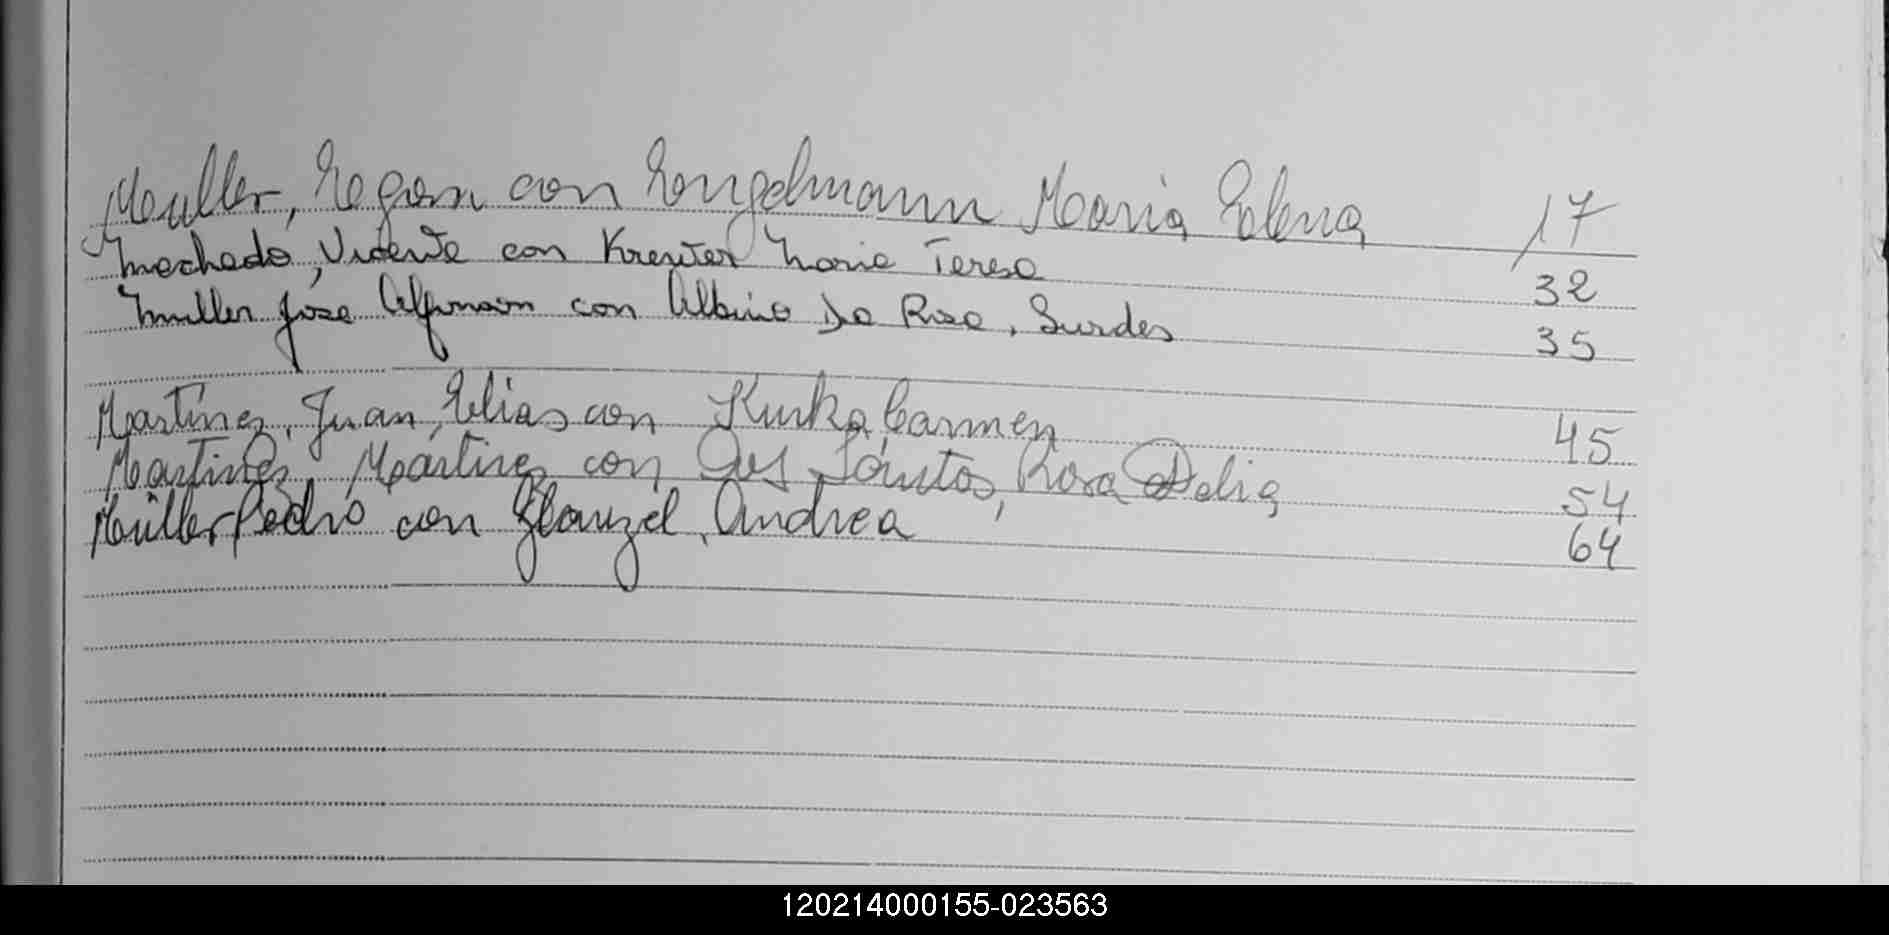 Muller, Egon con Engelmann Maria Elena 17
Machado, Vidente con Kreuter Maria Teresa 32
Muller Jose Alfonson con Albino Da Rosa, Lurdes 35
Martinez, Juan, Elias con Kurka, Carmen 45
Martinez Martires con Dos Santos, Rosa Delia 54
Müller Pedro con Glanzel, Andrea 64
120214000155-023563